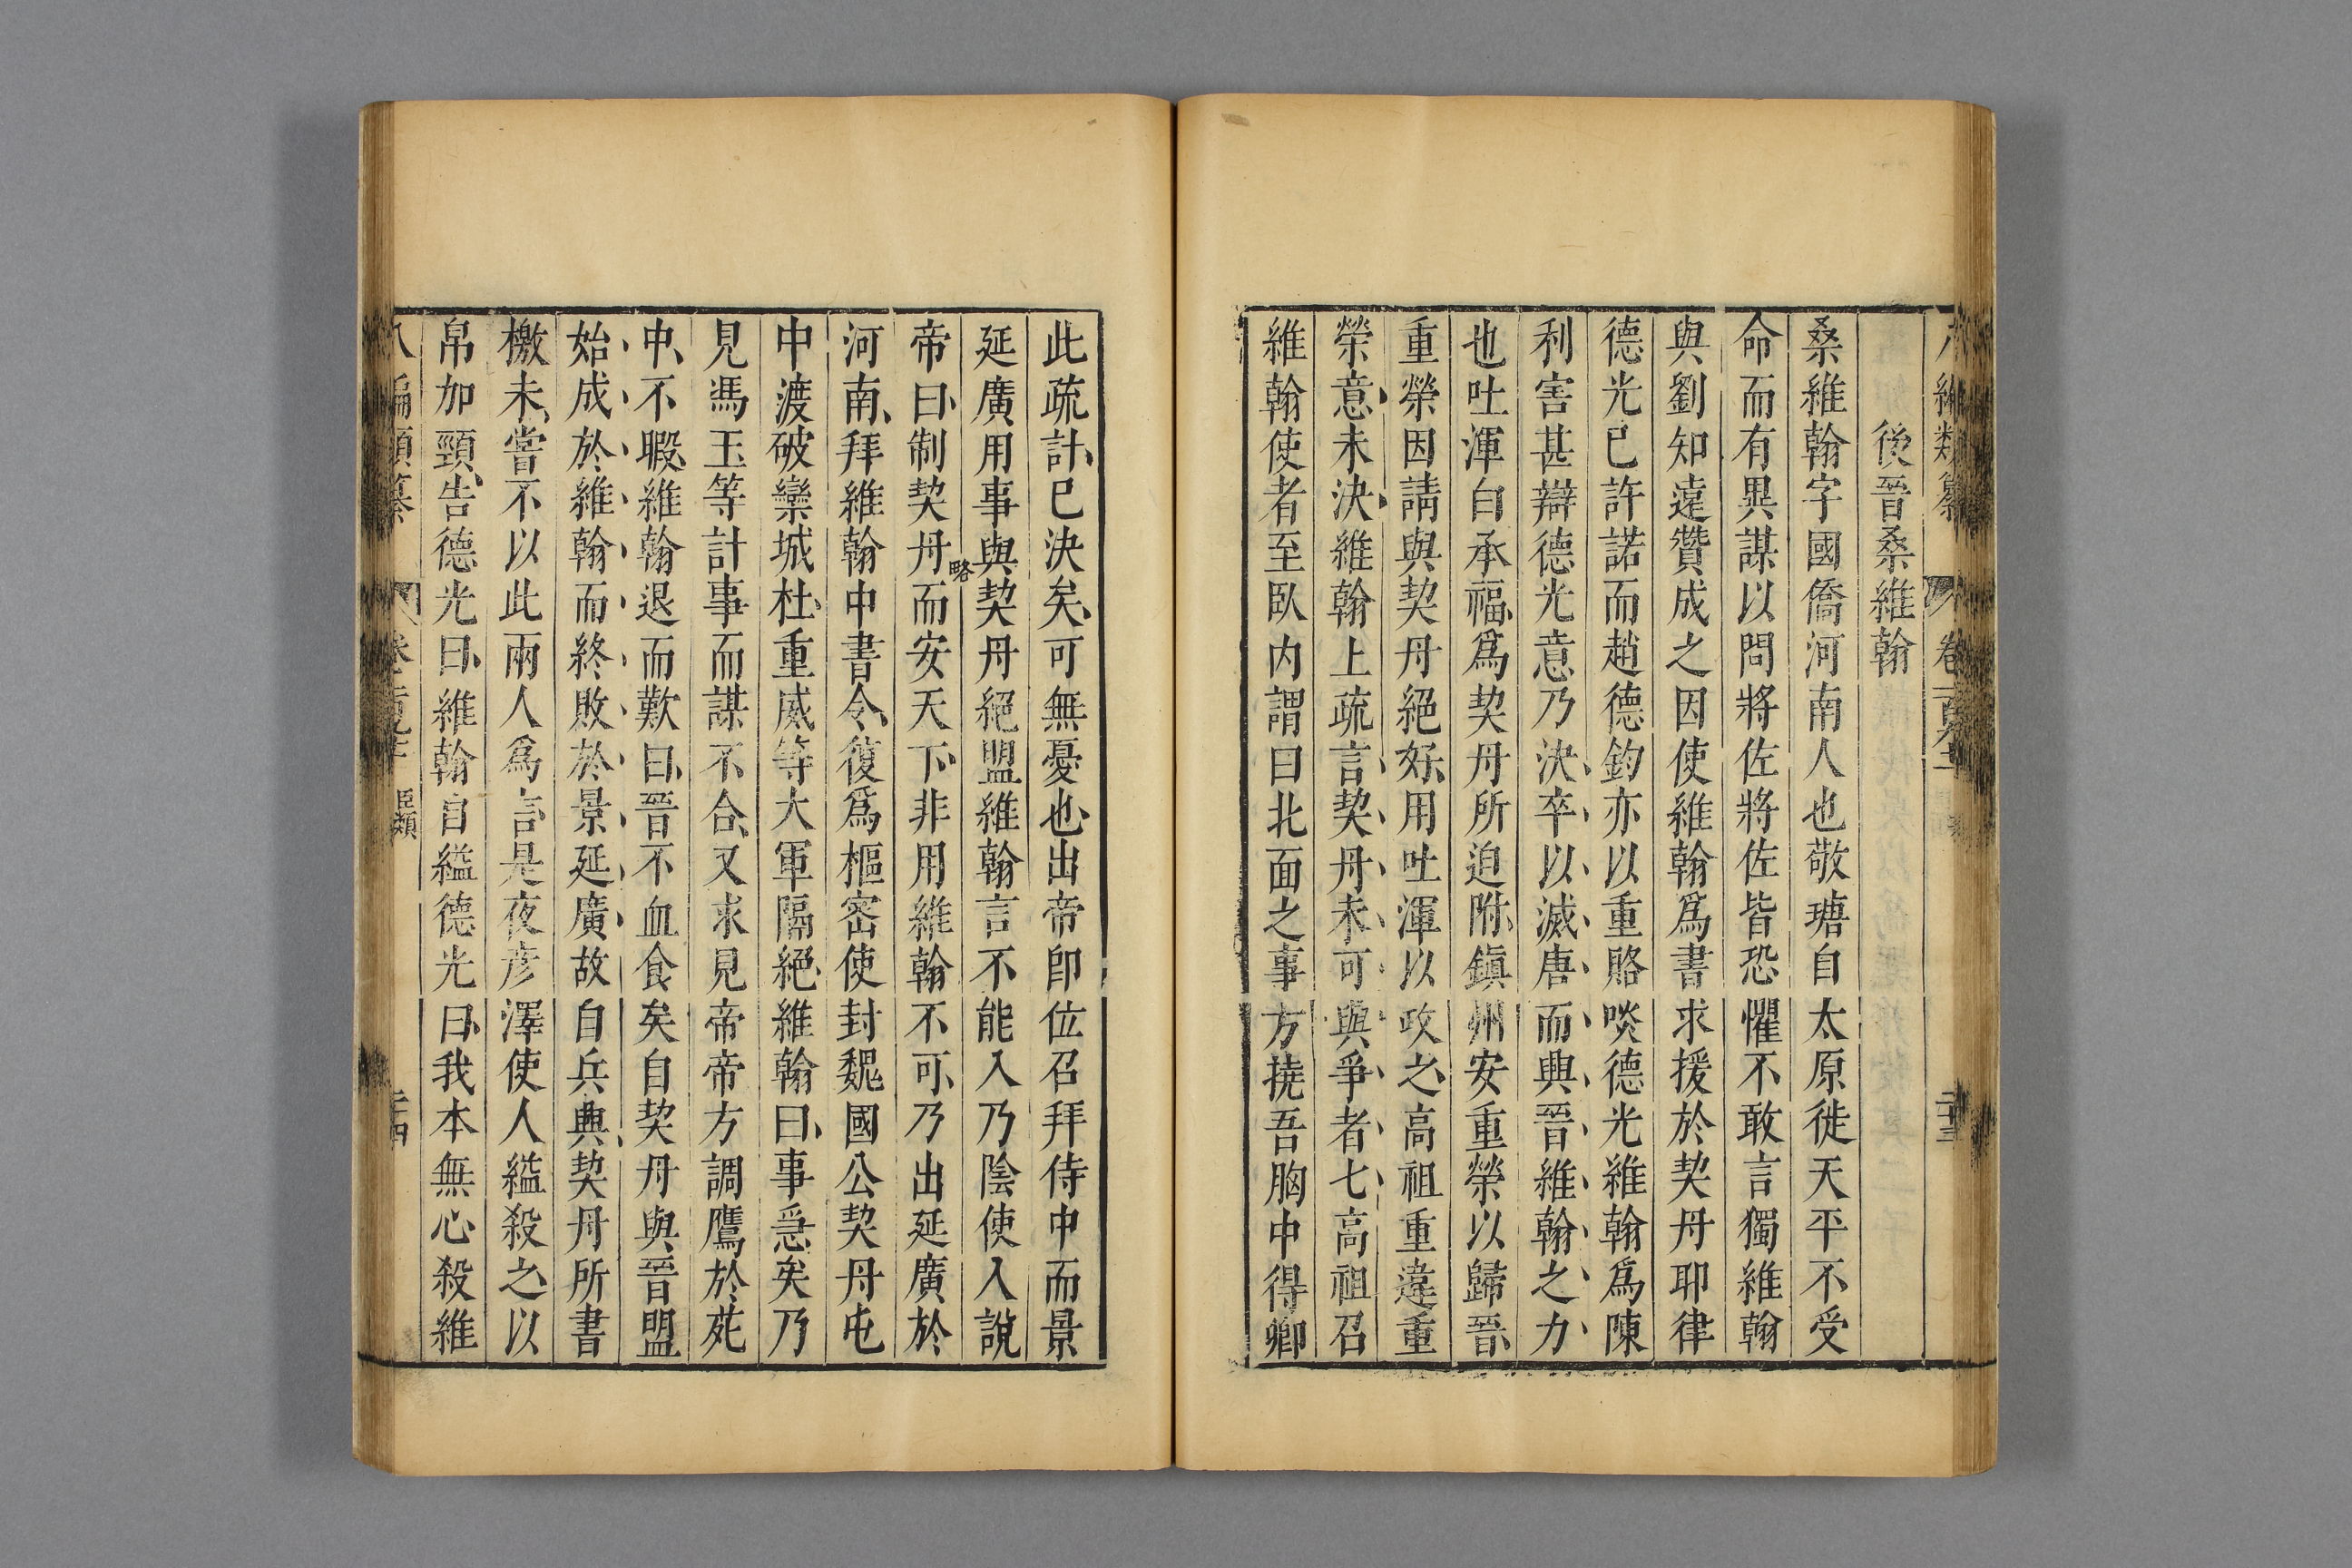 後晉桑維翰
桑維翰字國僑河南人也敬瑭自太原徙天平不受
命而有異謀以問將佐將佐皆恐懼不敢言獨維翰
與劉知遠贊成之因使維翰爲書求援於契丹耶律
德光已許諾而趙德鈞亦以重賂啖德光維翰爲陳
利害甚辯德光意乃決卒以滅唐而興晉維翰之力
也吐渾白承福爲契丹所迫附鎮州安重榮以歸晉
重榮因請與契丹絕好用吐渾以攻之高祖重違重
榮意未決維翰上疏言契丹未可與爭者七高祖召
維翰使者至臥内謂曰北面之事方撓吾胸中得卿
此疏計已決矣可無憂也出帝卽位召拜侍中而景
延廣用事與契丹絕盟維翰言不能入乃陰使人說
帝曰制契丹而安天下非用維翰不可乃出延廣於
略
河南拜維翰中書令復爲樞密使封魏國公契丹屯
中渡破欒城杜重威等大軍隔絕維翰曰事急矣乃
見馮玉等計事而謀不合又求見帝帝方調鷹於苑
中不暇維翰退而歎曰晉不血食矣自契丹與晉盟
始成於維翰而終敗於景延廣故自兵興契丹所書
檄未嘗不以此兩人爲言是夜彦澤使人縊殺之以
帛加頸告德光曰維翰自縊德光曰我本無心殺維
編類纂 臣類